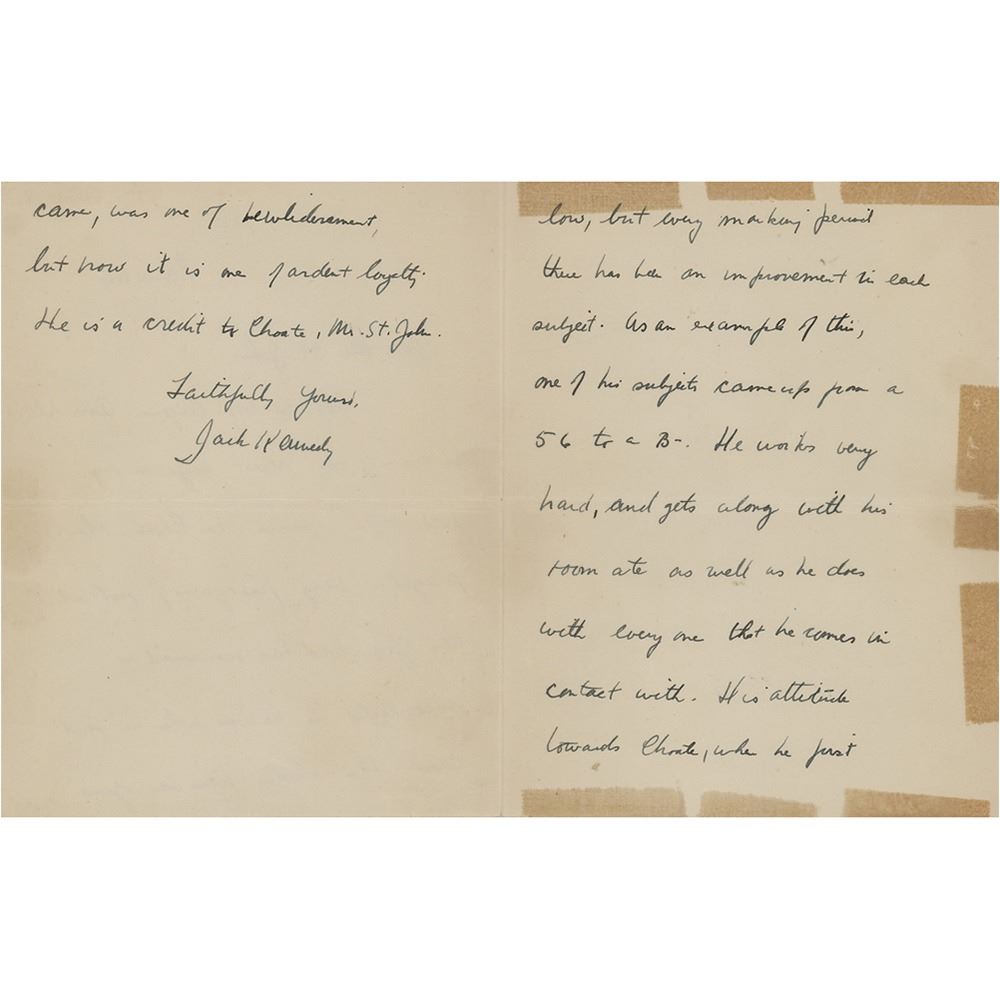 low, but every marking period
there has been an improvement in each
subject. As an example of this,
one of his subjects came up from a
56 to a B-. He works very
hard, and gets along with his
room ate as well as he does
with every one that he comes in
contact with. His attitude
towards Choate, when he first
came, was one of bewhiderement,
but now it is one of ardent loyalty.
He is a credit to Choate, Mr. St. John.
Faithfully yours,
Jack Kennedy